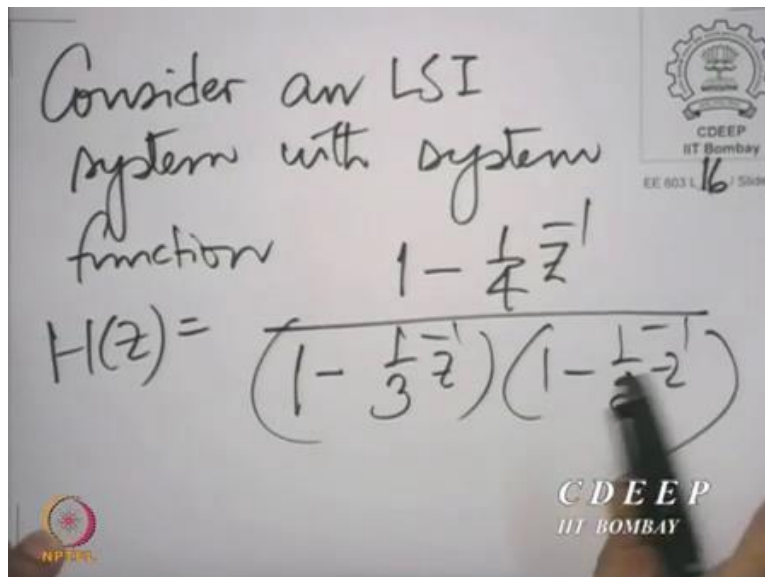 Consider an LSI
system with system
function
H(z) = (1 - 1/4 z^-1) / ((1 - 1/3 z^-1)(1 - 1/ z^-1))
CDEEP
IIT Bombay
EE 603 L 16 / Slide
CDEEP
IIT BOMBAY
NPTEL